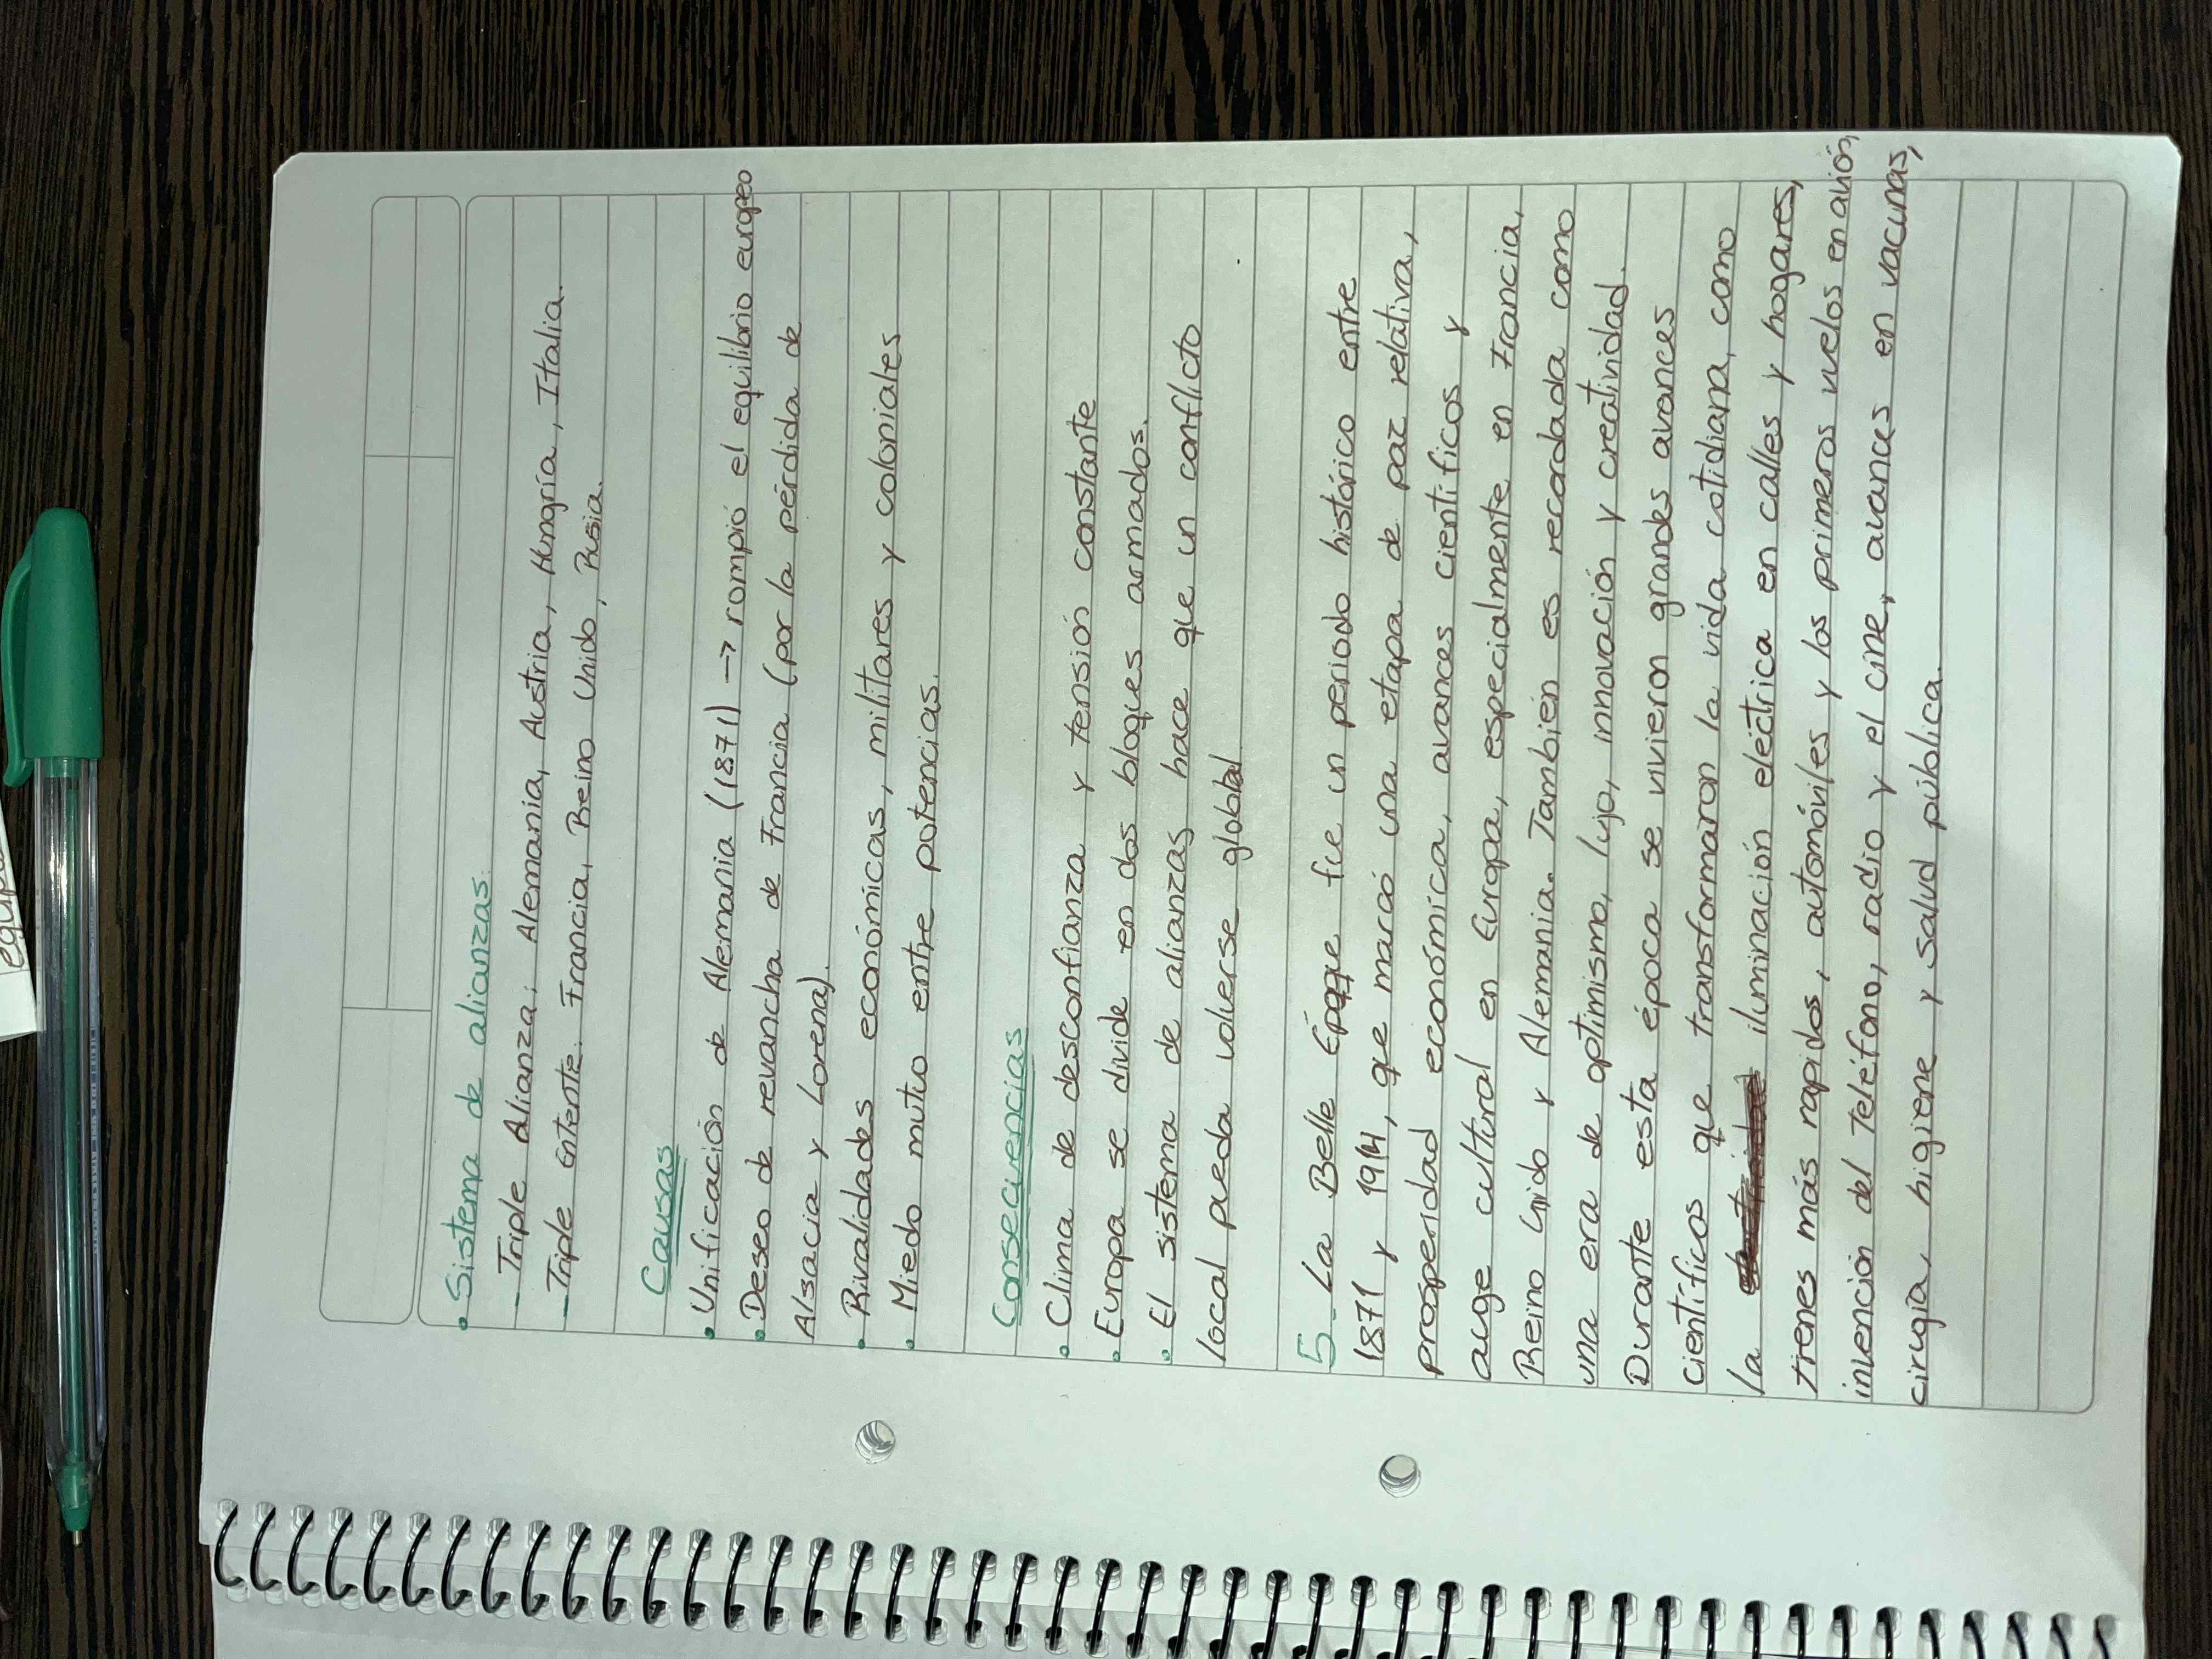 • Sistema de alianzas:
- Triple Alianza: Alemania, Austria, Hungría, Italia.
- Triple Entente: Francia, Reino Unido, Rusia.
Causas
• Unificación de Alemania (1871) → rompió el equilibrio europeo
• Deseo de revancha de Francia (por la pérdida de
Alsacia y Lorena).
• Rivalidades económicas, militares y coloniales
• Miedo mutuo entre potencias.
Consecuencias
• Clima de desconfianza y tensión constante
• Europa se divide en dos bloques armados.
• El sistema de alianzas hace que un conflicto
local pueda volverse global
5- La Belle Époque fue un periodo histórico entre
1871 y 1914, que marcó una etapa de paz relativa,
prosperidad económica, avances científicos y
auge cultural en Europa, especialmente en Francia,
Reino Unido y Alemania. También es recordada como
una era de optimismo, lujo, innovación y creatividad.
Durante esta época se vivieron grandes avances
científicos que transformaron la vida cotidiana, como
la iluminación eléctrica en calles y hogares,
trenes más rapidos, automóviles y los primeros vuelos en avión,
invención del teléfono, radio y el cine, avances en vacunas,
cirugía, higiene y salud pública.